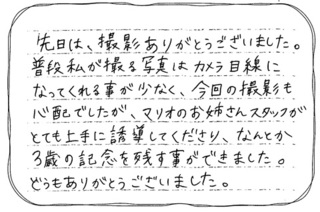 先日は、撮影ありがとうございました。
普段私が撮る写真はカメラ目線に
なってくれる事が少なく、今回の撮影も
心配でしたが、マリオのお姉さんスタッフが
とても上手に誘導してくださり、なんとか
3歳の記念を残す事ができました。
どうもありがとうございました。